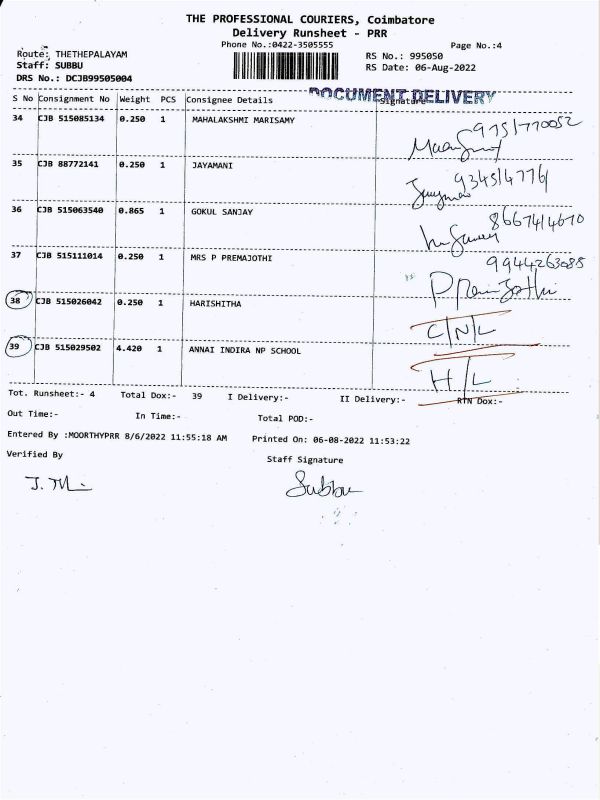 THE PROFESSIONAL COURIERS, Coimbatore
Delivery Runsheet - PRR
Phone No.:0422-3505555 Page No.:4
Route: THETHEPALAYAM RS No.: 995050
Staff: SUBBU RS Date: 06-Aug-2022
DRS No.: DCJB99505004
DOCUMENT DELIVERY
S No Consignment No Weight PCS Consignee Details Signature
34 CJB 515085134 0.250 1 MAHALAKSHMI MARISAMY 9751770052
35 CJB 88772141 0.250 1 JAYAMANI 9345147761
36 CJB 515063540 0.865 1 GOKUL SANJAY 8667414670
37 CJB 515111014 0.250 1 MRS P PREMAJOTHI 9944263085
38 CJB 515026042 0.250 1 HARISHITHA C/N/L
39 CJB 515029502 4.420 1 ANNAI INDIRA NP SCHOOL H/L
Tot. Runsheet:- 4 Total Dox:- 39 I Delivery:- II Delivery:- RTN Dox:-
Out Time:- In Time:- Total POD:-
Entered By :MOORTHYPRR 8/6/2022 11:55:18 AM Printed On: 06-08-2022 11:53:22
Verified By Staff Signature
Subbu